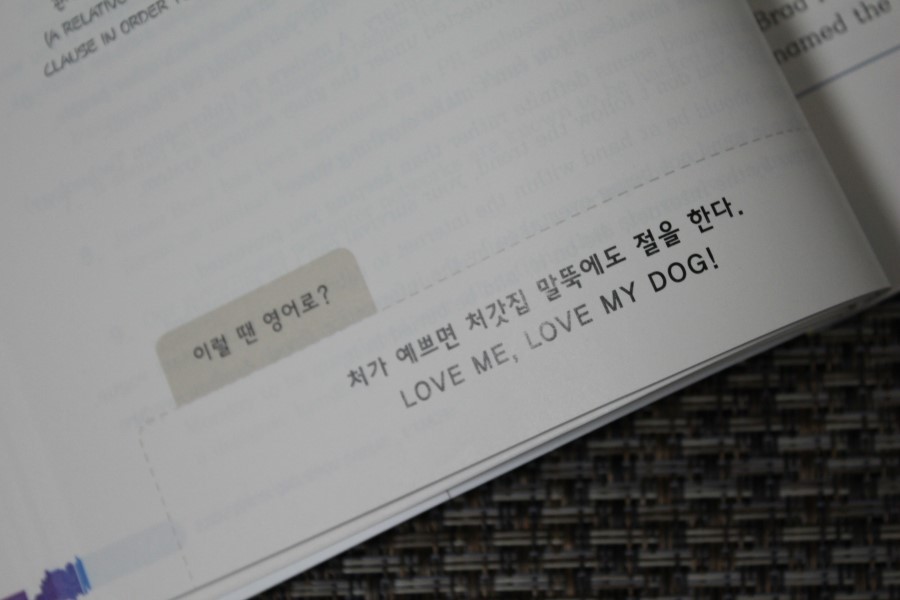 (A RELATIVE
CLAUSE IN ORDER
Brod
named the
이럴 땐 영어로?
처가 예쁘면 처갓집 말뚝에도 절을 한다.
LOVE ME, LOVE MY DOG!